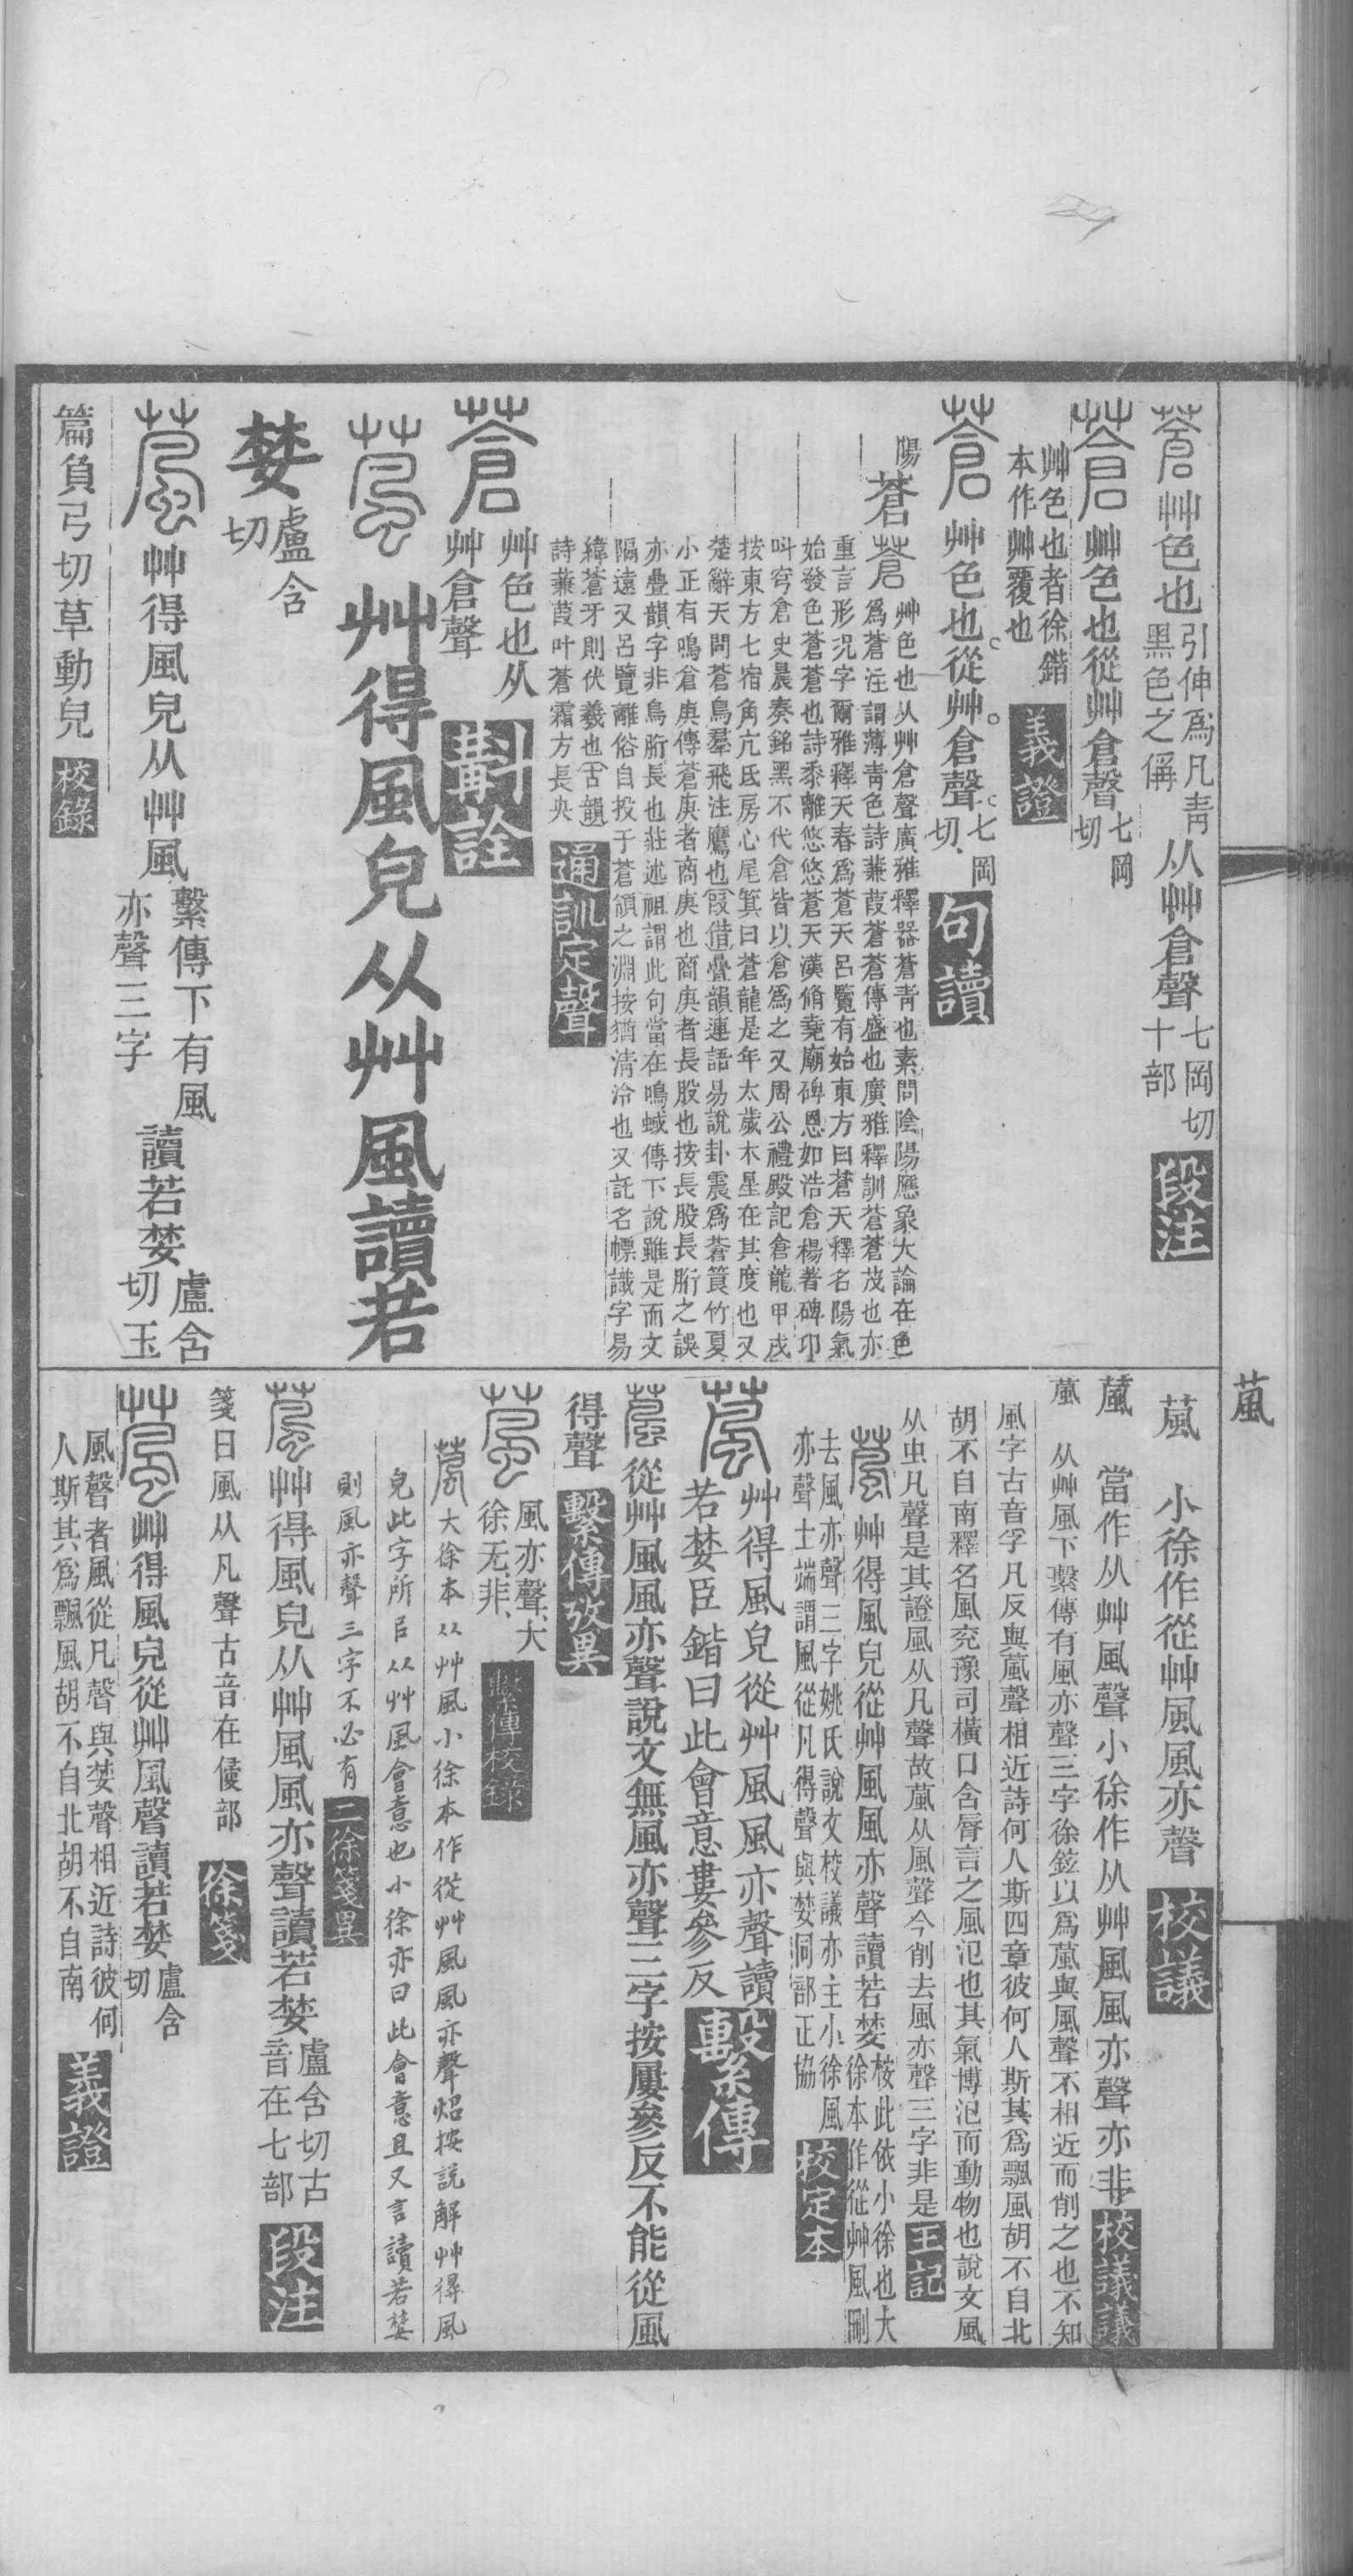 蒼艸色也引伸爲凡青黑色之偁从艸倉聲七岡切十部段注
蒼艸色也從艸倉聲七岡切
艸色也者徐鍇本作艸覆也義證
蒼艸色也從艸倉聲七岡切句讀
陽蒼蒼艸色也从艸倉聲廣雅釋器蒼青也素問陰陽應象大論在色
爲蒼注謂薄青色詩蒹葭蒼蒼傳盛也廣雅釋訓蒼蒼茂也亦
重言形況字爾雅釋天春爲蒼天呂覽有始東方曰蒼天釋名陽氣
始發色蒼蒼也詩黍離悠悠蒼天漢脩堯廟碑恩如浩倉楊著碑卬
叫穹倉史晨奏銘黑不代倉皆以倉爲之又周公禮殿記倉龍甲戌
按東方七宿角亢氐房心尾箕曰蒼龍是年太歲木星在其度也又
楚辭天問蒼鳥羣飛注鷹也叚借疊韻連語易說卦震爲蒼筤竹夏
小正有鳴倉庚傳蒼庚者商庚也商庚者長股也按長股長胻之誤
亦疊韻字非鳥胻長也莊述祖謂此句當在鳴蜮傳下說雖是而文
隔遠又呂覽離俗自投于蒼領之淵按猶清泠也又託名幖識字易
緯蒼牙則伏羲也古韻
詩蒹葭叶蒼霜方長央通訓定聲
蒼艸色也从艸倉聲斠詮
葻艸得風皃从艸風讀若
婪盧含切
葻艸得風皃从艸風繫傳下有風亦聲三字讀若婪盧含切玉
篇負弓切草動皃校錄
葻
葻小徐作從艸風風亦聲校議
葻當作从艸風聲小徐作从艸風風亦聲亦非校議議
葻从艸風下繫傳有風亦聲三字徐鉉以爲葻與風聲不相近而削之也不知
風字古音孚凡反與葻聲相近詩何人斯四章彼何人斯其爲飄風胡不自北
胡不自南釋名風兖豫司橫口含脣言之風氾也其氣博氾而動物也說文風
从虫凡聲是其證風从凡聲故葻从風聲今削去風亦聲三字非是王記
葻艸得風皃從艸風風亦聲讀若婪桉此依小徐也大徐本作從艸風刪
去風亦聲三字姚氏說文校議亦主小徐風亦聲士端謂風從凡得聲與婪同部正協校定本
葻艸得風皃從艸風風亦聲讀
若婪臣鍇曰此會意婁參反繫傳
葻從艸風風亦聲說文無風亦聲三字按屢參反不能從風
得聲繫傳攷異
葻風亦聲大徐无非繫傳校錄
葻大徐本从艸風小徐本作從艸風風亦聲炤按說解艸得風
皃此字所㠯从艸風會意也小徐亦曰此會意且又言讀若婪
則風亦聲三字不必有二徐箋異
葻艸得風皃从艸風風亦聲讀若婪盧含切古音在七部段注
箋曰風从凡聲古音在侵部徐箋
葻艸得風皃從艸風聲讀若婪盧含切
風聲者風從凡聲與婪聲相近詩彼何
人斯其爲飄風胡不自北胡不自南義證